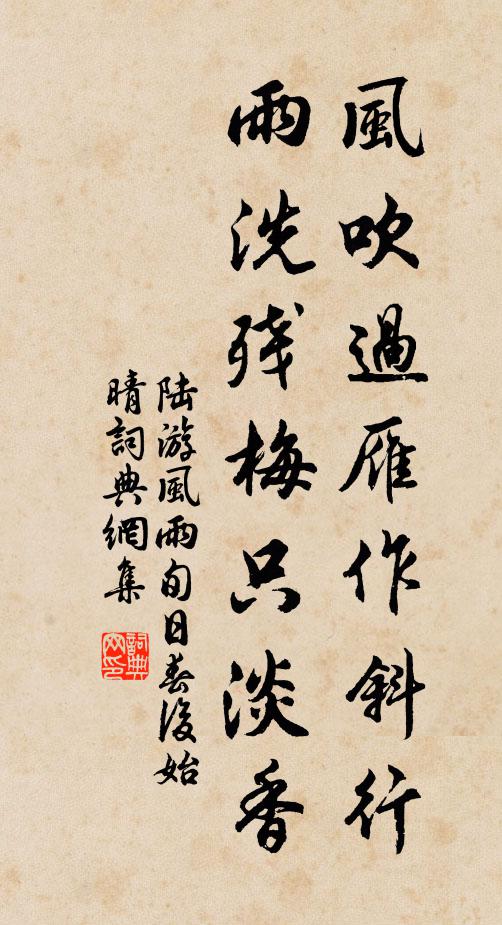 風吹過雁作斜行
雨洗残梅只淡香
陆游風雨旬日春後始
晴詞典網集
詞典
网印